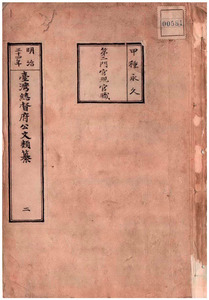 甲種永久
第三門官規官職
明治
三十四年
臺灣總督府公文類纂
二